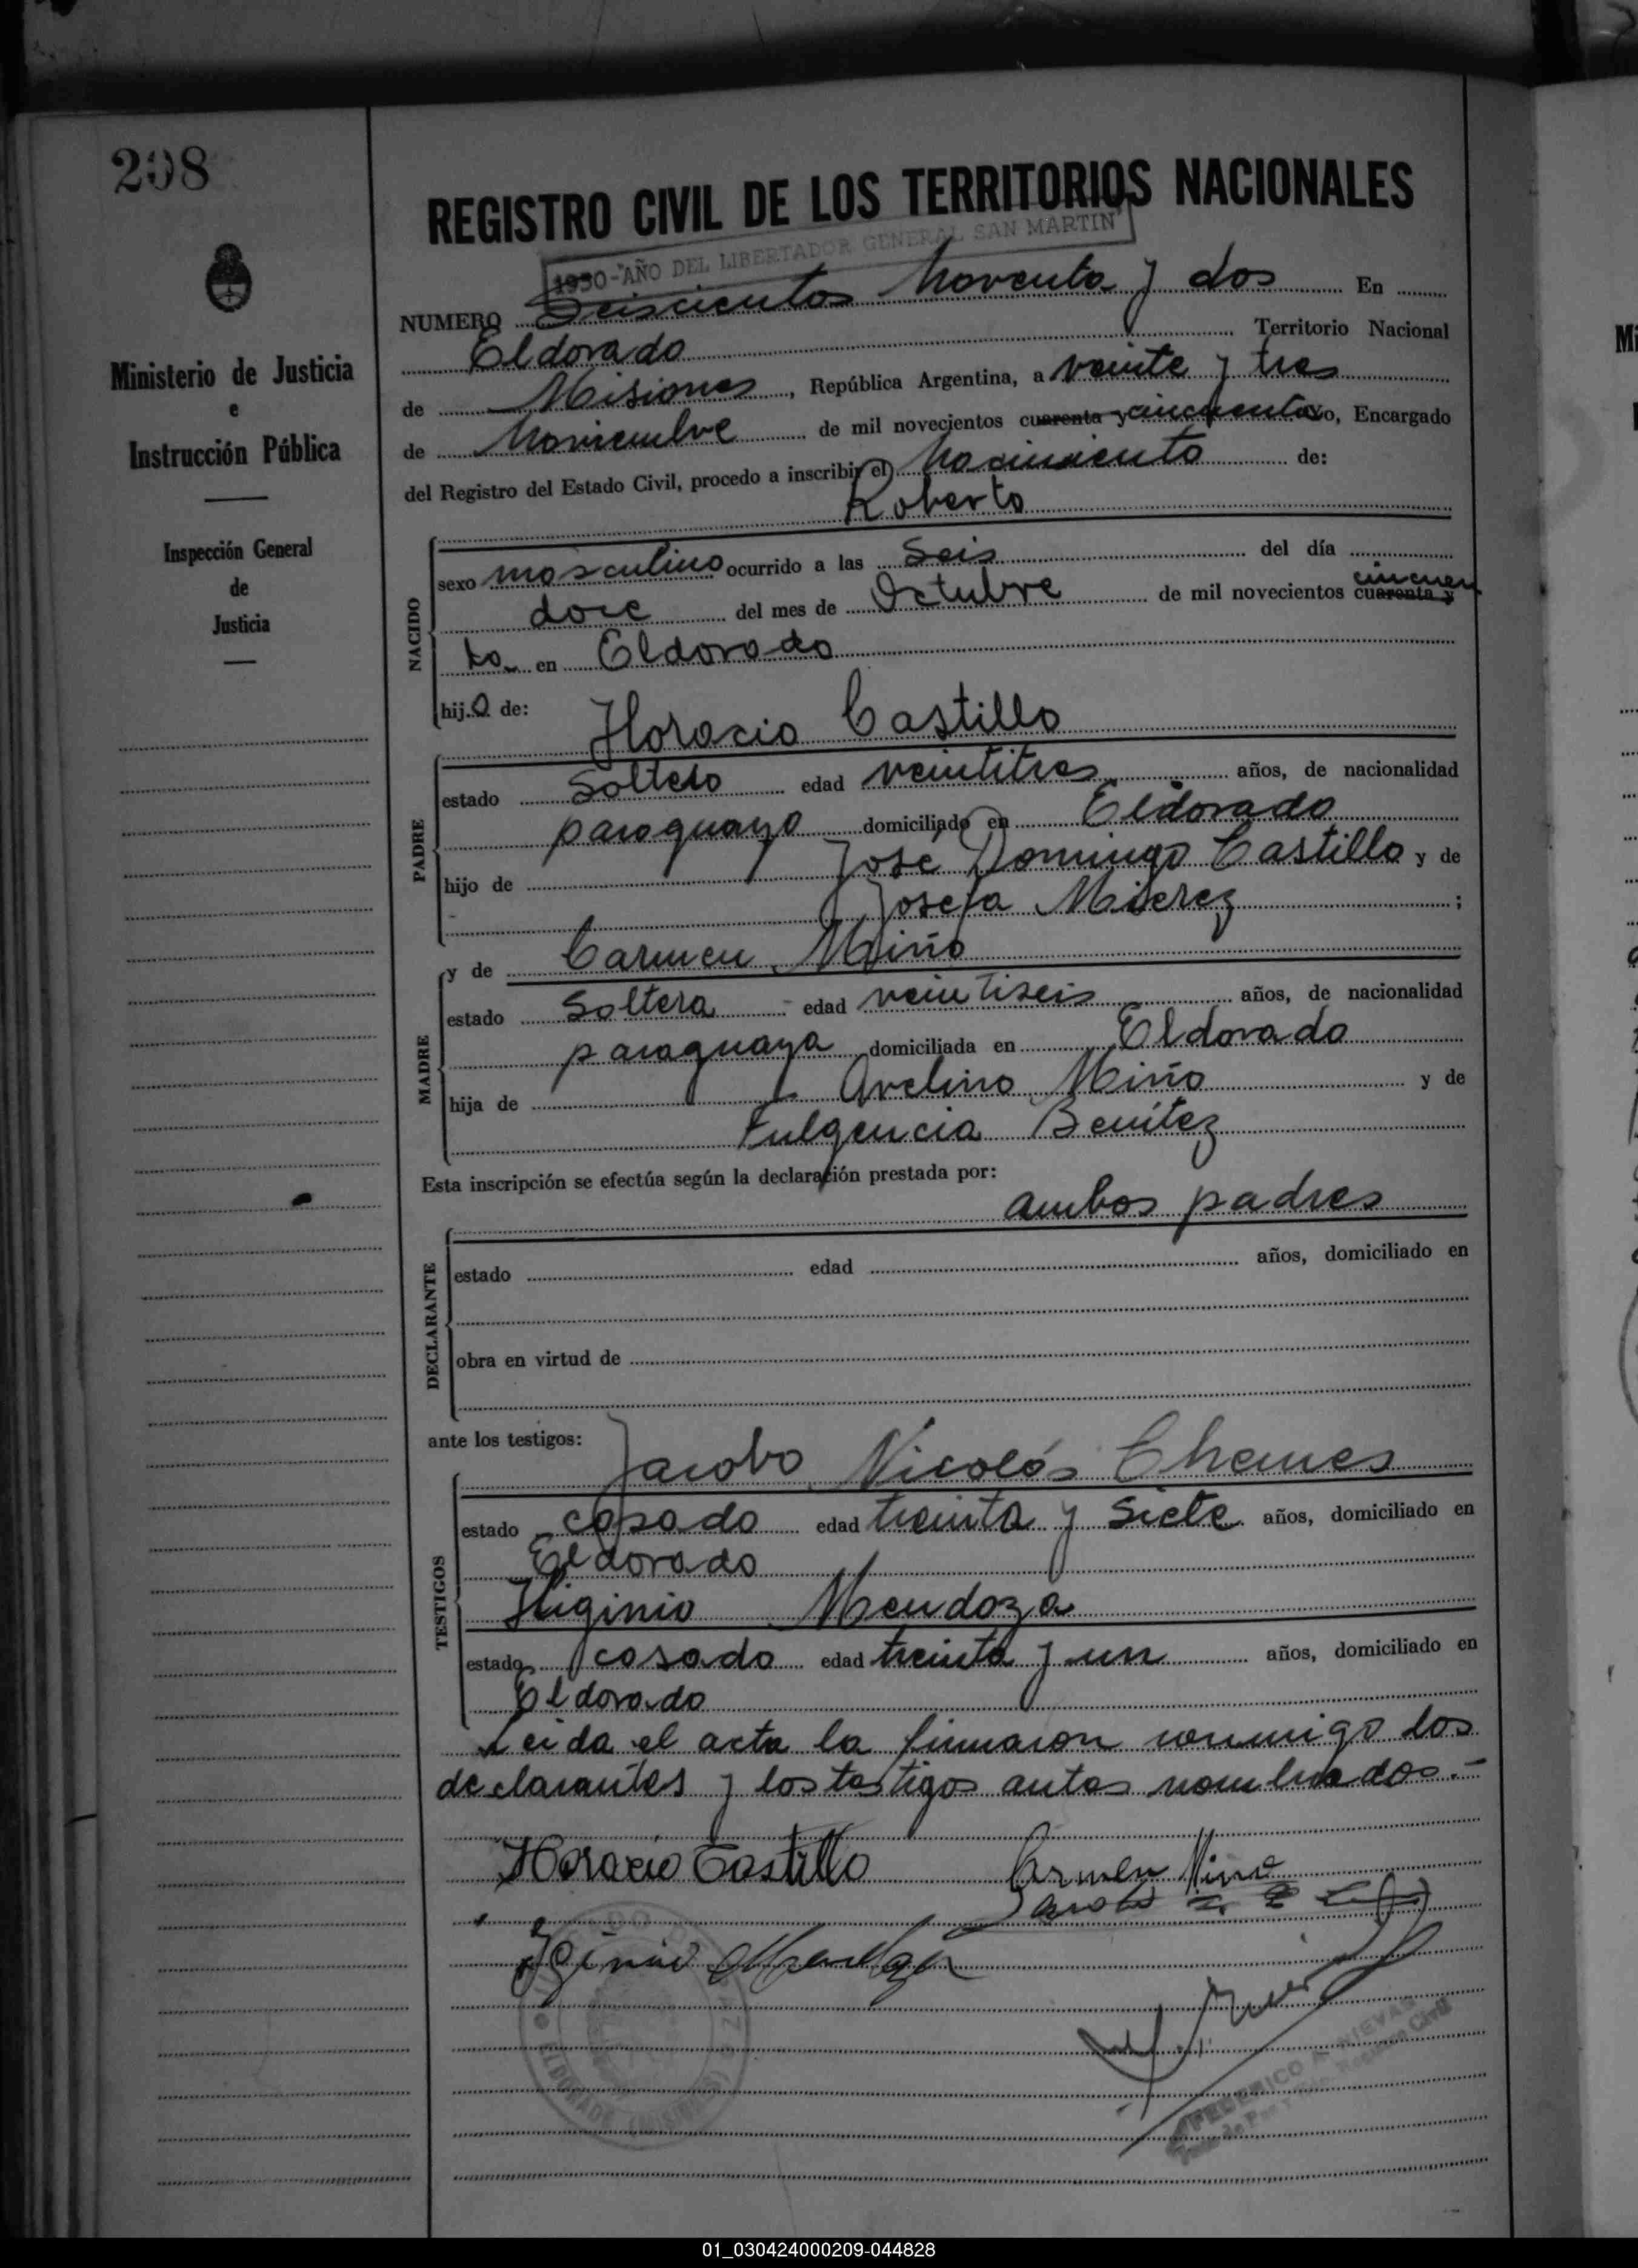 208
REGISTRO CIVIL DE LOS TERRITORIOS NACIONALES
1950-"AÑO DEL LIBERTADOR GENERAL SAN MARTIN"
NUMERO Seiscientos Noventa y dos En
Eldorado Territorio Nacional
de Misiones, República Argentina, a veinte y tres
de Noviembre de mil novecientos cuarenta y cincuenta yo, Encargado
del Registro del Estado Civil, procedo a inscribir el Nacimiento de:
Roberto
Ministerio de Justicia
e
Instrucción Pública
Inspección General
de
Justicia
NACIDO
sexo masculino ocurrido a las Seis del día
doce del mes de Octubre de mil novecientos cuarenta y cincuen
ta en Eldorado
hijo de:
Horacio Castillo
PADRE
estado Soltero edad veintitres años, de nacionalidad
paraguayo domiciliado en Eldorado
hijo de José Domingo Castillo y de
Josefa Mierez ;
MADRE
y de Carmen Miño
estado Soltera edad veintiseis años, de nacionalidad
paraguaya domiciliada en Eldorado
hija de Avelino Miño y de
Fulgencia Benítez
Esta inscripción se efectúa según la declaración prestada por:
ambos padres
DECLARANTE
estado edad años, domiciliado en
obra en virtud de
ante los testigos:
Jacobo Nicolás Chemes
TESTIGOS
estado casado edad treinta y siete años, domiciliado en
Eldorado
Higinio Mendoza
estado casado edad treinta y un años, domiciliado en
Eldorado
Leida el acta la firmaron conmigo los
declarantes y los testigos antes nombrados.-
Horacio Castillo Carmen Miño
FEDERICO A. NIEVAS
Juez de Paz y Enc. Registro Civil
ELDORADO (MISIONES)
01_030424000209-044828